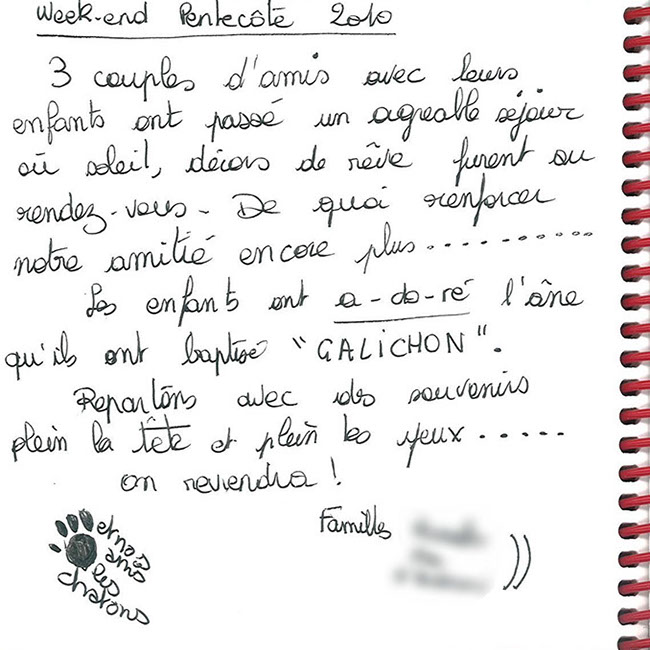 Week-end Pentecôte 2010
3 couples d'amis avec leurs
enfants ont passé un agréable séjour
où soleil, décors de rêve furent au
rendez-vous - De quoi renforcer
notre amitié encore plus . . . . . . . . . .
Les enfants ont a-do-ré l'âne
qu'ils ont baptisé "GALICHON".
Repartons avec des souvenirs
plein la tête et plein les yeux . . . . .
on reviendra !
Familles
et nos
amis
les
chatons